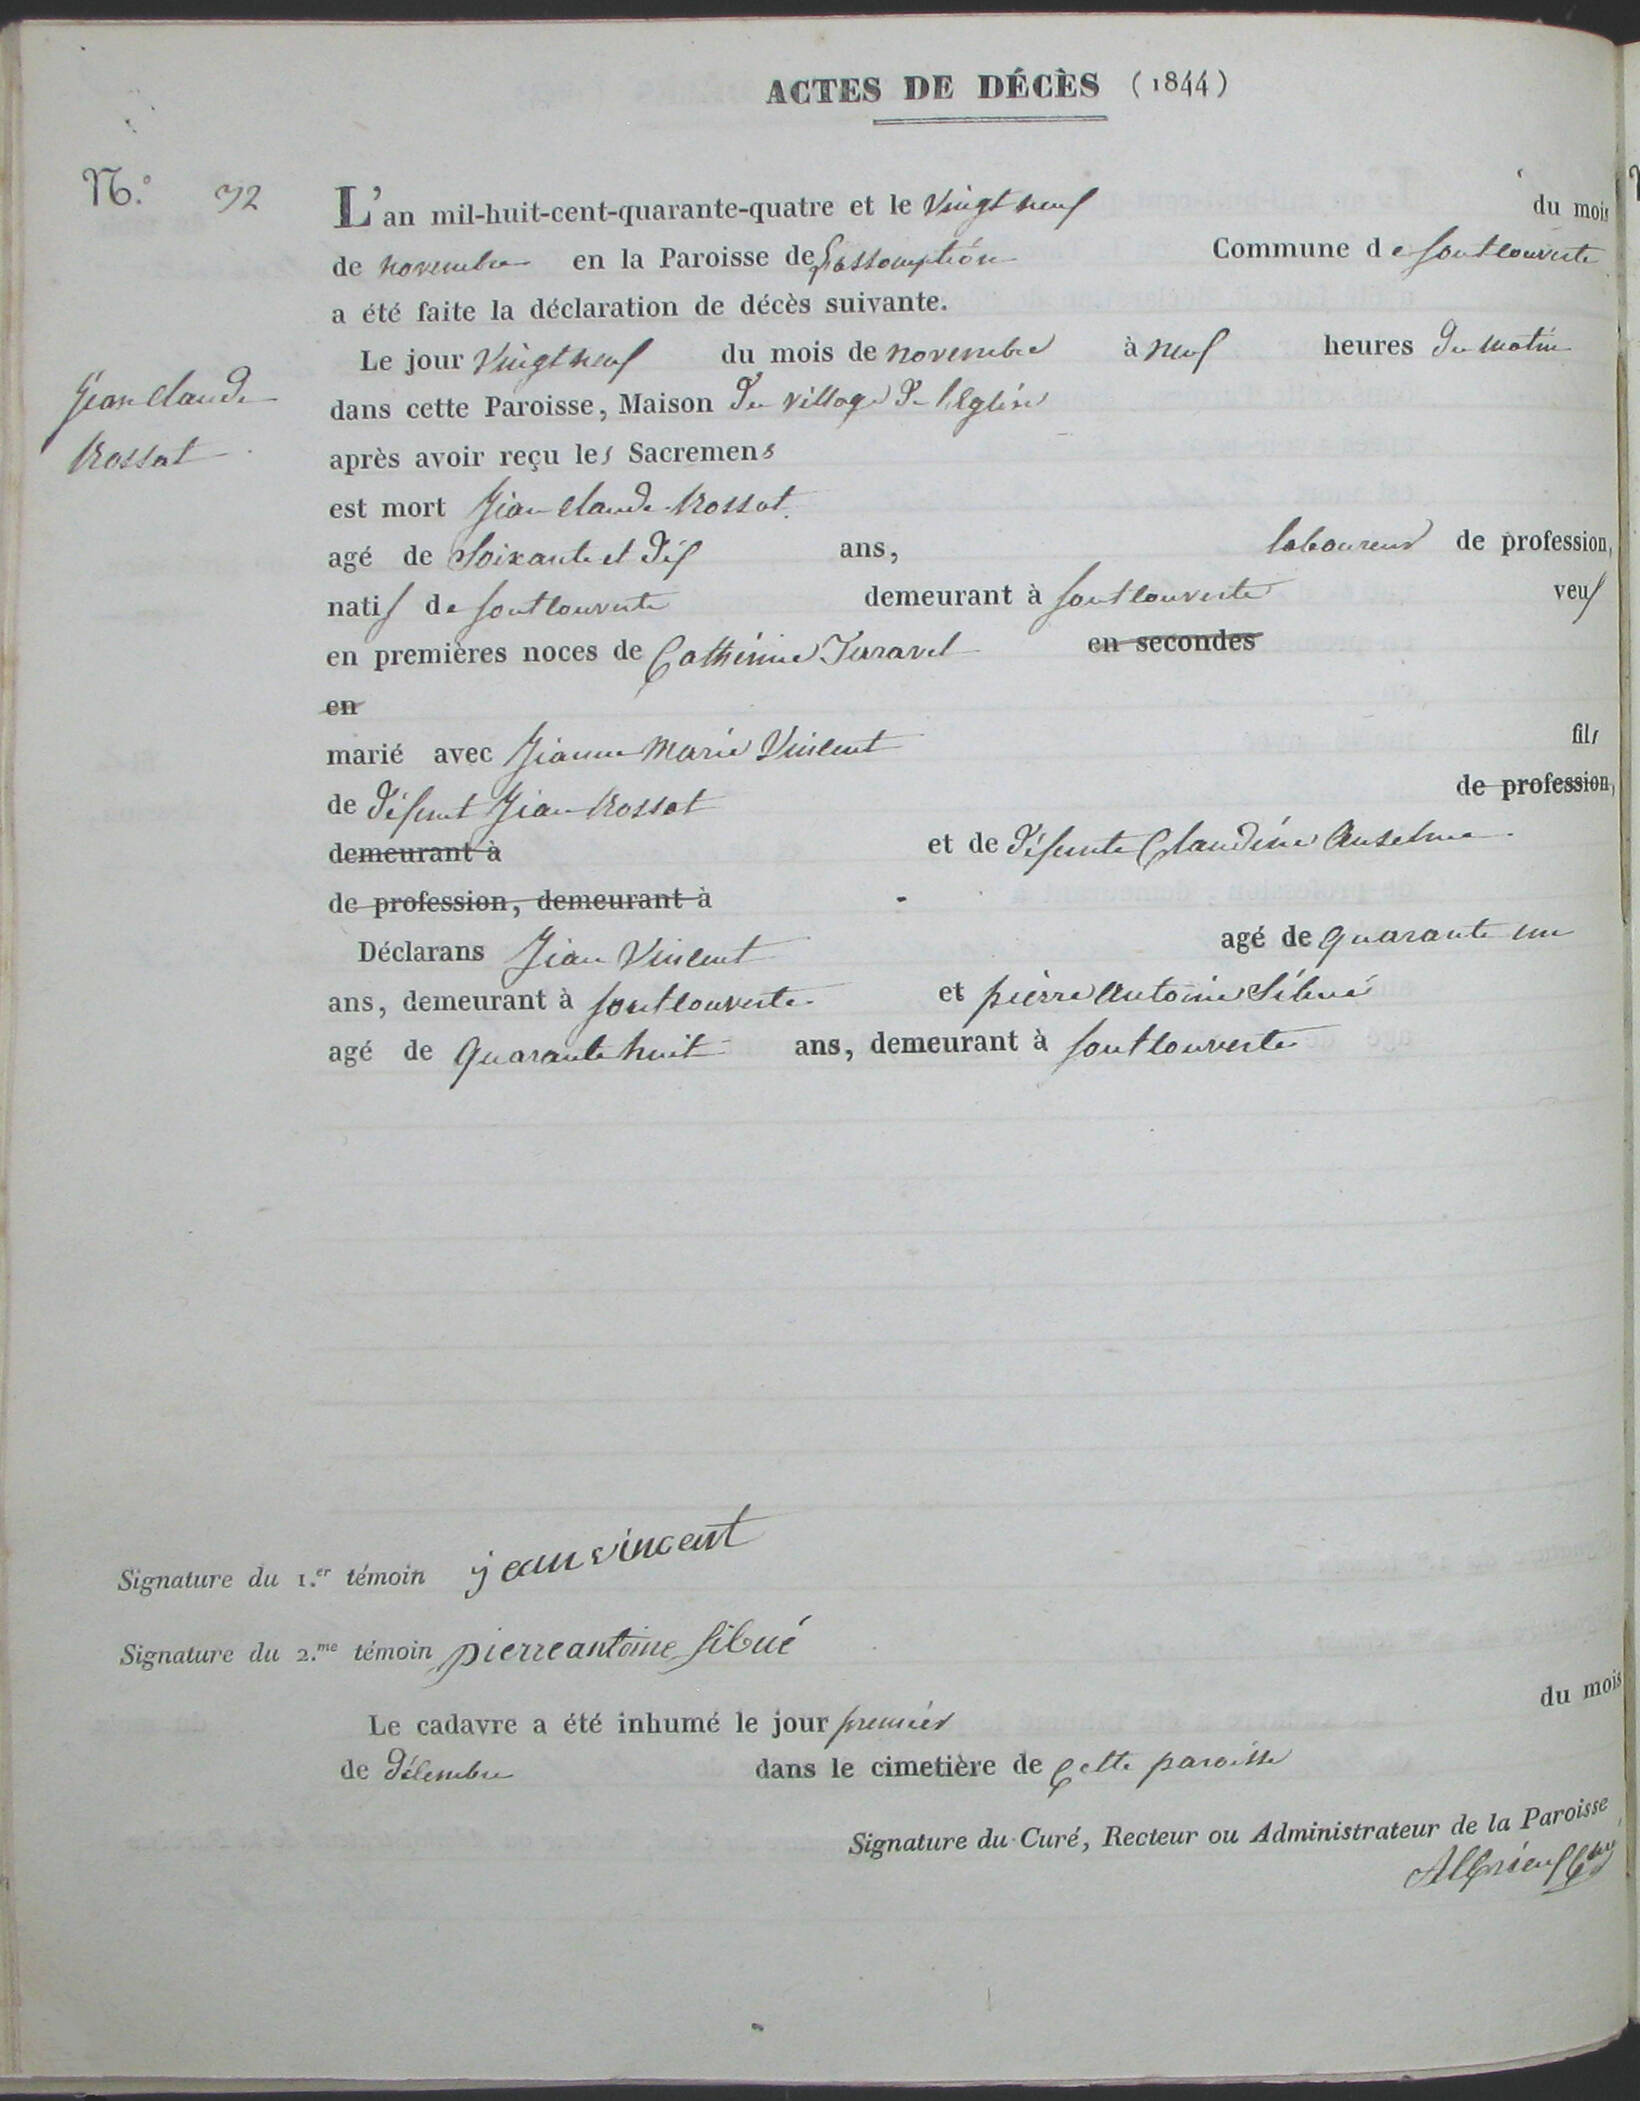 ACTES DE DÉCÈS (1844)
N.º 72
L'an mil-huit-cent-quarante-quatre et le vingt neuf du mois
de novembre en la Paroisse de Lassomption Commune de fontcouverte
a été faite la déclaration de décès suivante.
Le jour vingt neuf du mois de novembre à neuf heures du matin
Jean Claude
Rossat
dans cette Paroisse, Maison du village de l'Eglise
après avoir reçu les Sacremens
est mort Jean Claude Rossat.
agé de Soixante et dix ans, laboureur de profession,
natif de fontcouverte demeurant à fontcouverte veuf
en premières noces de Catherine en secondes
en
marié avec Jeanne Marie Vincent fils
de défunt Jean Rossat de profession,
demeurant à et de défunte Claudine Anselme
de profession, demeurant à -
Déclarans Jean Vincent agé de quarante un
ans, demeurant à fontcouverte et pierre Antoine Sibué
agé de quarante huit ans, demeurant à fontcouverte
Signature du 1.er témoin jean vincent
Signature du 2.me témoin pierre antoine Sibué
Le cadavre a été inhumé le jour premier du mois
de décembre dans le cimetière de cette paroisse
Signature du Curé, Recteur ou Administrateur de la Paroisse